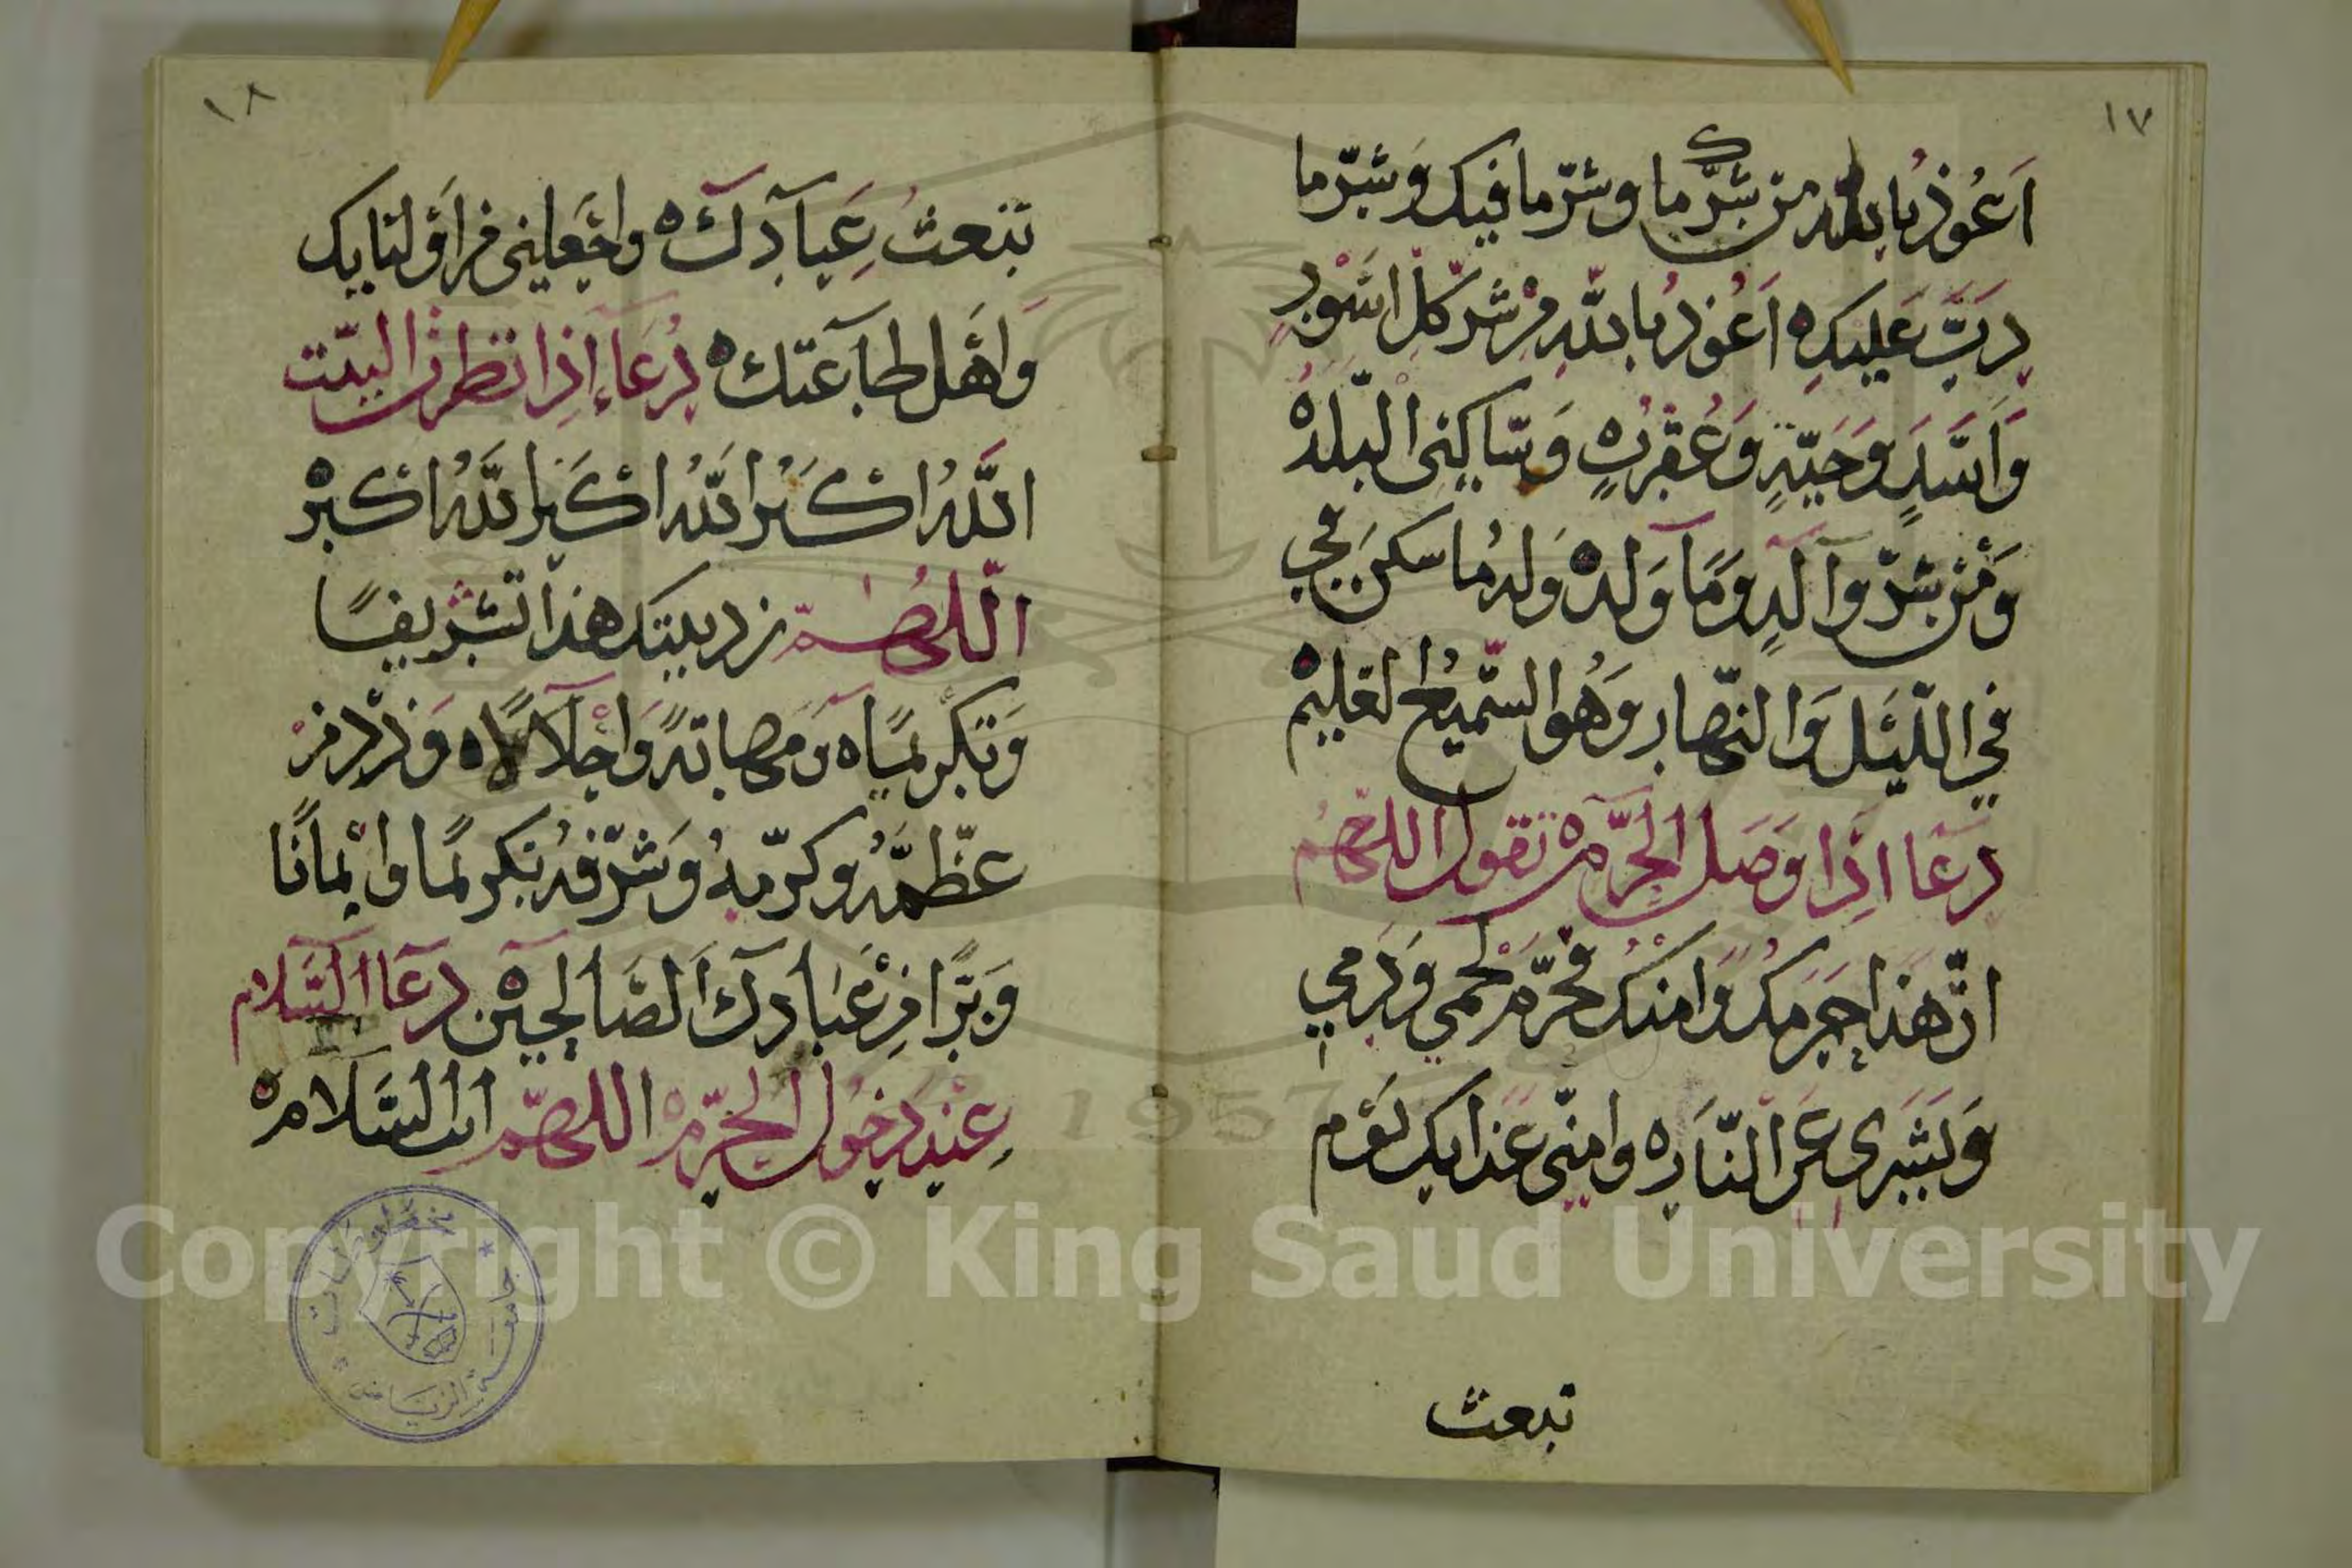 ١٧
اَعُوذُ بالله من شرّك ما وشرّما فيك وَشرّما
دَبَّ عَليكِ ه اَعُوذُ بالله مْن شرّ كلّ اسْوَدٍ
وَاَسَدٍ وَحَيّةٍ وَعُقْربٍ ه وَسَّاكِنِ البلدْه
وَمْن شرّ وآلدٍ وَمَا وَلده وَلهُ ما سكنَ في
في اللّيَل وَالنّهار وَهُوا السَّميُع العَليمْ
دعَا اذَا وَصَل الحَرَّم ه تقول اللهُم
انّ هَذا حرمكُ وَامنكُ فحَرّم لحْمي وَدَمي
وَبَشَرى عَلَى النّار ه وامنّى عَذابك يَوم
تبعث
١٨
تبعثُ عِبآدكَ ه واجَعلنى مْن اَوليَايك
وَاهَل طآعتك ه دُعَاءَ اِذا نظر الى البيَت
اللَّهُ اكَبَر اللهُ اكبَر اللَّهُ اكبرْ
اللّهُمّ زد بيتك هذا تشْريفًا
وَتكريمًا ه وَمَهابتهً وَاجْلآلًا ه وَزدْ مْن
عظّمَهُ وكرّمهُ وَشرّفهُ تكريمًا وايْمانًا
وَبرًّا مِنْ عَبادك اَلصَالحينْ دعَا السَّلام
عِنْدَ دخُول الحَرّم ه اللهمّ انت السَّلام ه
جامعة الرياض
مخطوطات
Copyright © King Saud University
1957